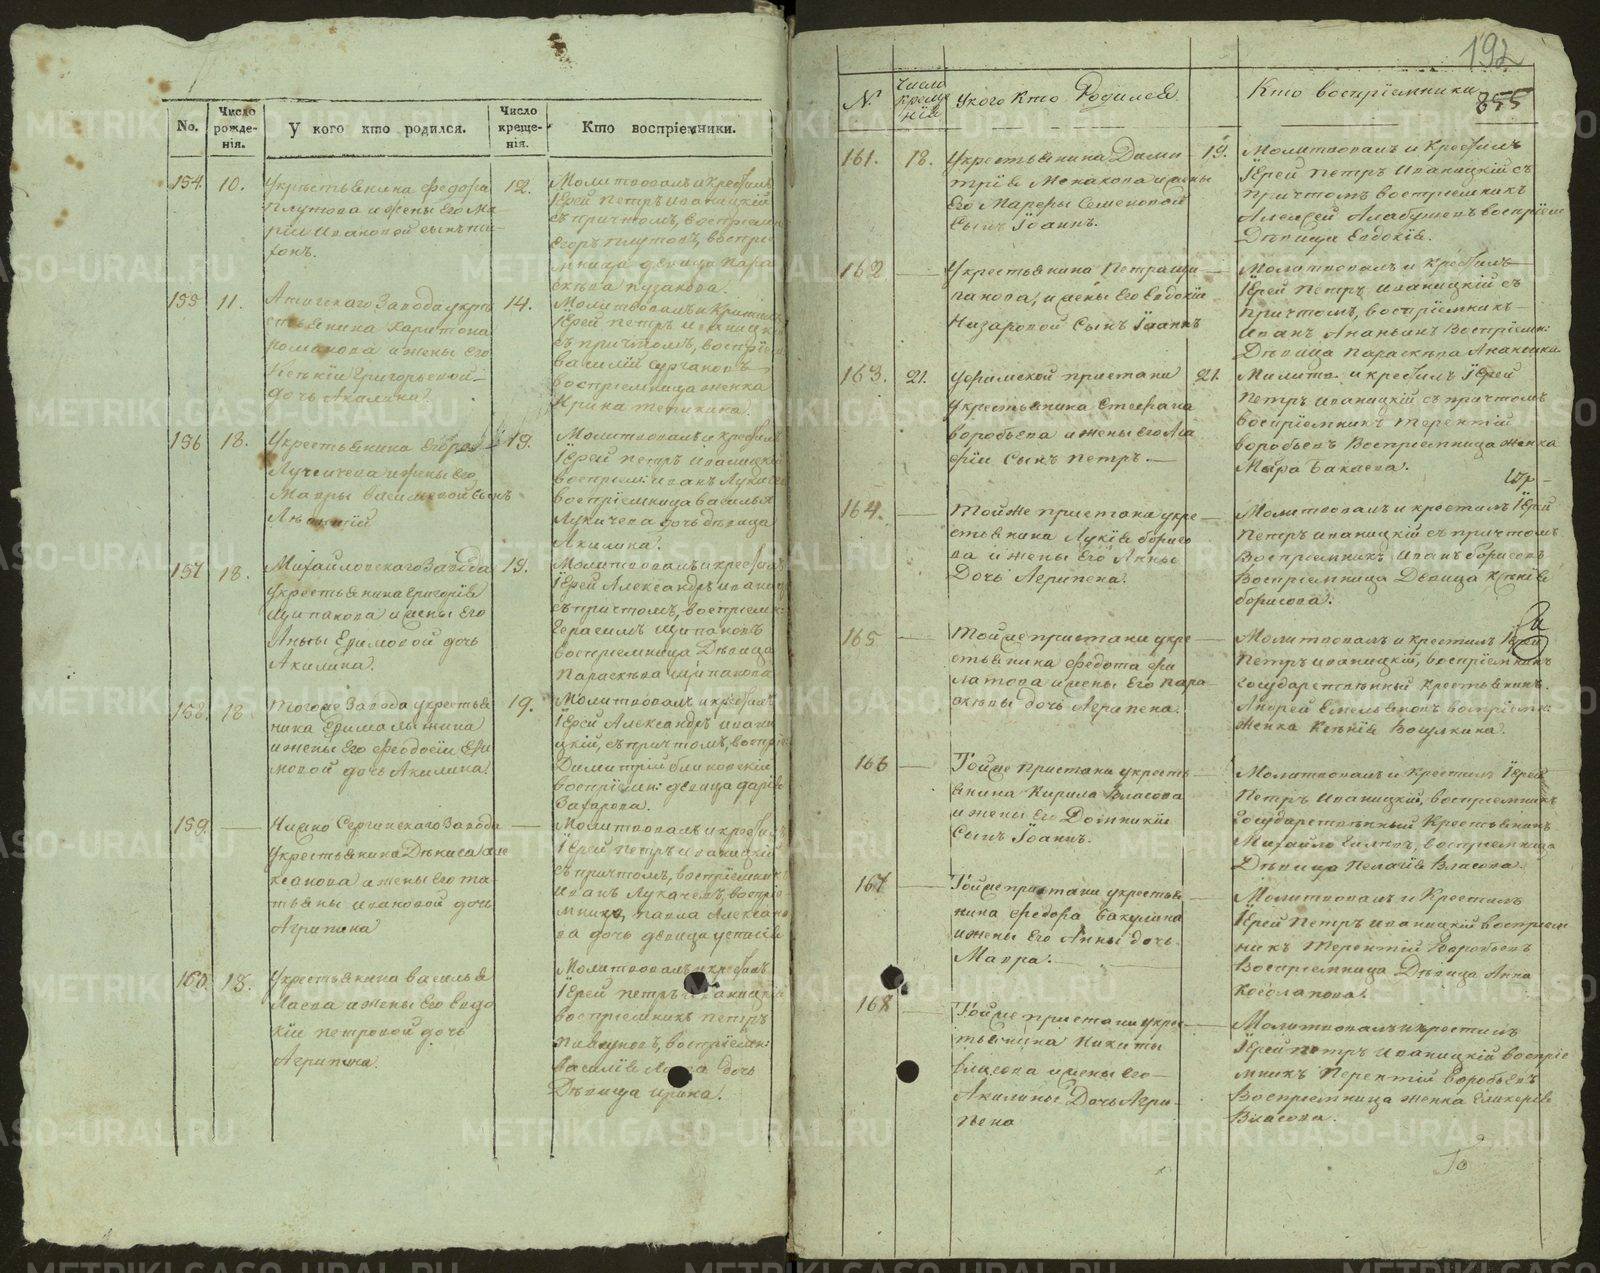 No.
Число рожде-нія.
У кого кто родился.
Число креще-нія.
Кто воспріемники.
154. 10.
Укрестьянина Федора
Плутова ижены Его Ма
ріи Ивановой сынъ
12.
Молитвовалъ и крестилъ
Іерей Петръ Иваницкій
съ причтомъ, воспріем
Егоръ Плутовъ, воспріе
мница девица Пара
скѣва Пузакова.
155 11.
Атигскаго Завода укрес
стьянина Харитона
Романова ижены Его
Григорьевой
дочь Акилина.
14.
Молитвовалъ и Крестилъ
Іерей Петръ Иваницкій
съ причтомъ, воспріем
василій
воспріемница женка
Ирина
156 18.
Укрестьянина
Лукичева ижены Его
Мавры васильевой сынъ
19.
Молитвовалъ и крестилъ
Іерей Петръ Иваницкій
воспріем: иванъ Лукичев
воспріемница василья
Лукичева дочь дѣвица
Акилина.
157 18.
Михайловскаго Завода
укрестьянина Григорія
Щипанова ижены Его
Анны Ефимовой дочь
Акилина.
19.
Молитвовалъ и крестилъ
Іерей Александръ иваниц
съ притомъ, воспріемн:
Герасимъ Щипановъ
воспріемница Дѣвица
Параскѣва Щипанова
158. 18
Тогоже Завода укрестья
нина Ефима
ижены Его Феодосіи Ефи
мовой дочь Акилина.
19.
Молитвовалъ и крестилъ
Іерей Александръ ивани
цкій, съ причтомъ, воспріе
Димитрій
воспріемн: девица дарія
Захарова.
159. —
Нижно Сергинскаго Завода
укрестьянина Дениса Але
ксанова ижены Его та
тьяны ивановой дочь
Агрипина
—
Молитвовалъ и крестилъ
Іерей Петръ Иваницкій
съ причтомъ, воспріемник
Иванъ Лукачевъ, воспріе
мница, павла Алексано
ва дочь девица
160. 18.
Укрестьянина василья
ижены Его Евдо
кіи петровой дочь
Агрипина
Молитвовалъ и крестилъ
Іерей петръ иваницкій
воспріемникъ петръ
воспріемн:
василія дочь
Дѣвица ирина.
192
855
№
Число креще нія
Укого Кто Родился.
Кто воспріемники
161. 18.
Укрестьянина Дими
трія ижены
Его Марфы Семеновой
Сынъ Іоаннъ.
19.
Молитвовалъ и Крестилъ
Іерей Петръ Иваницкій съ
причтомъ воспріемникъ
Алексей воспріем
Дѣвица Евдокія.
162 —
Укрестьянина Петра Щи
панова, ижены Его Евдокіи
Назаровой Сынъ Іоаннъ
—
Молитвовалъ и Крестилъ
Іерей Петръ Иваницкій съ
Причтомъ, воспріемникъ
Иванъ Ананьинъ Воспріемн:
Дѣвица Параскѣва Ананьина.
163. 21.
Уфимской пристани
Укрестьянина Стефана
воробьева ижены Его Ма
ріи Сынъ Петръ.—
21.
Молитв. и крестилъ Іерей
Петръ иваницкій съ причтомъ
Воспріемникъ Терентій
воробьевъ Воспріемница женка
164. —
Тойже пристани укре
стьянина Лукія борисо
ва ижены Его Анны
Дочь Агрипена.
—
Молитвовалъ и крестилъ Іерей
Петръ иваницкій съ причтомъ
Воспріемникъ Иванъ борисовъ
Воспріемница Дѣвица Ксенія
борисова.
165 —
Тойже пристани укре
стьянина Федота Фи
латова ижены Его Пара
скѣвы дочь Агрипена.
—
Молитвовалъ и крестилъ Іерей
Петръ иваницкій, воспріемникъ
Государственный Крестьянинъ
Андрей Емельяновъ воспріемн
Женка Ксенія
166 —
Тойже Пристани укресть
янина Кирила Власова
ижены Его Домникіи
Сынъ Іоаннъ.
—
Молитвовалъ и Крестилъ Іерей
Петръ Иваницкій, воспріемникъ
Государственный Крестьянинъ
Михайло воспріемница
Дѣвица Пелагія Власова.
167 —
Тойже пристани укрестья
нина Федора Бакулина
ижены Его Анны дочь
Мавра.
—
Молитвовалъ и Крестилъ
Іерей Петръ иваницкій воспріем
никъ Терентій Воробьевъ
Воспріемница Дѣвица Анна
Косолапова.
168 —
Тойже пристани укрес
тьянина Никиты
Власова ижены Его
Акилины Дочь Агри
пена
—
Молитвовалъ и крестилъ
Іерей петръ Иваницкій воспріе
мникъ Терентій Воробьевъ
Воспріемница женка Гликерія
Власова.
METRIKI.GASO-URAL.RU